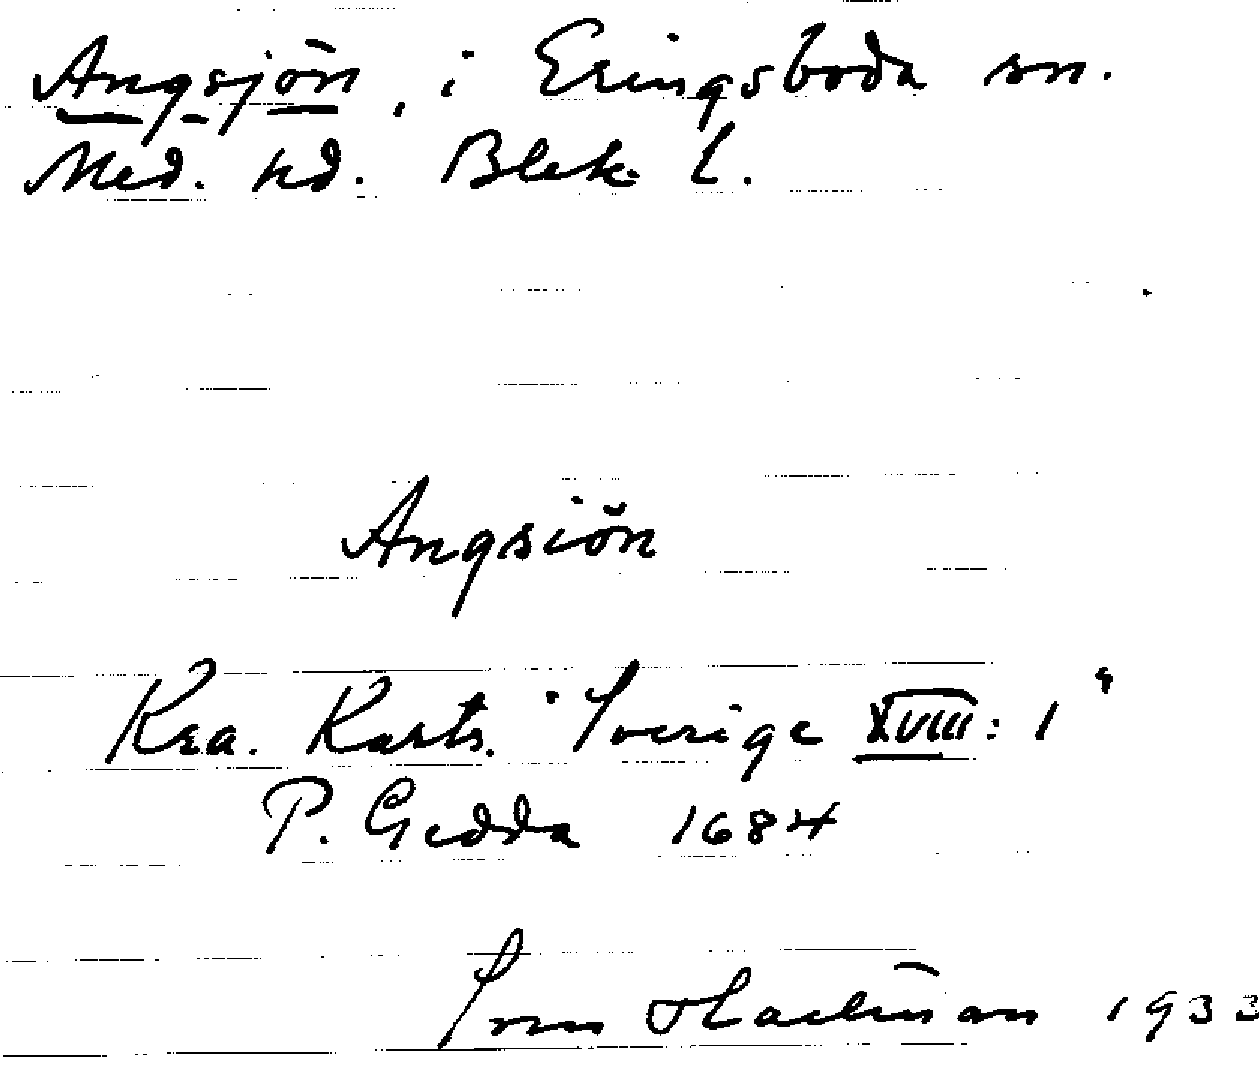 Angsjön, i Eringsboda sn.
Med. hd. Blek. l.
Angsiön
Kra. Kartv. "Sverige XVIII: 1"
P. Gedda 1684
1933